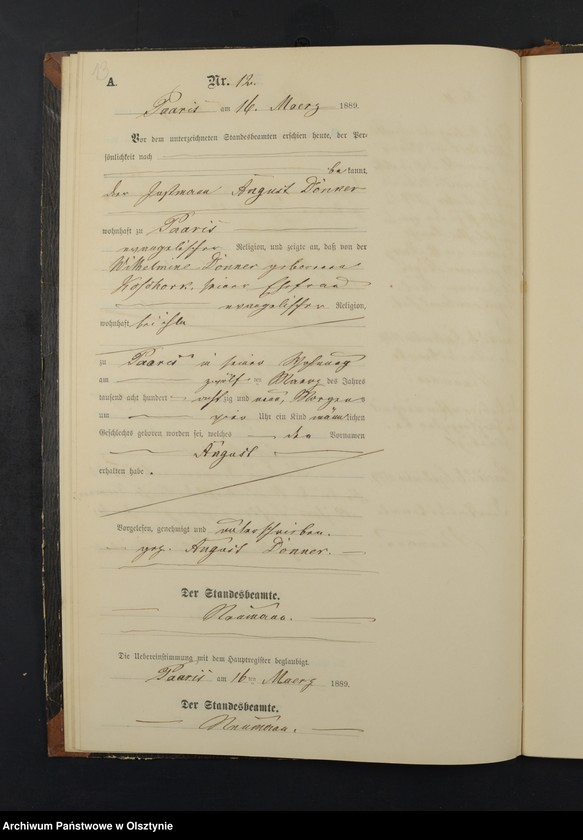 13
A.
Nr. 12.
Paaris am 16. Maerz 1889.
Vor dem unterzeichneten Standesbeamten erschien heute, der Per-
sönlichkeit nach
bekannt,
der Instmann August Dönner
wohnhaft zu Paaris
evangelischer Religion, und zeigte an, daß von der
Wilhelmine Dönner geborenen
seiner Ehefrau
evangelischer Religion,
wohnhaft bei ihm
zu Paaris in seiner Wohnung
am zwölf ten Maerz des Jahres
tausend acht hundert achtzig und neun, Morgens
um Uhr ein Kind männlichen
Geschlechts geboren worden sei, welches den Vornamen
August
erhalten habe.
Vorgelesen, genehmigt und unterschrieben.
gez. August Dönner.
Der Standesbeamte.
Neumann.
Die Uebereinstimmung mit dem Hauptregister beglaubigt.
Paaris am 16ten Maerz 1889.
Der Standesbeamte.
Neumann.
Archiwum Państwowe w Olsztynie